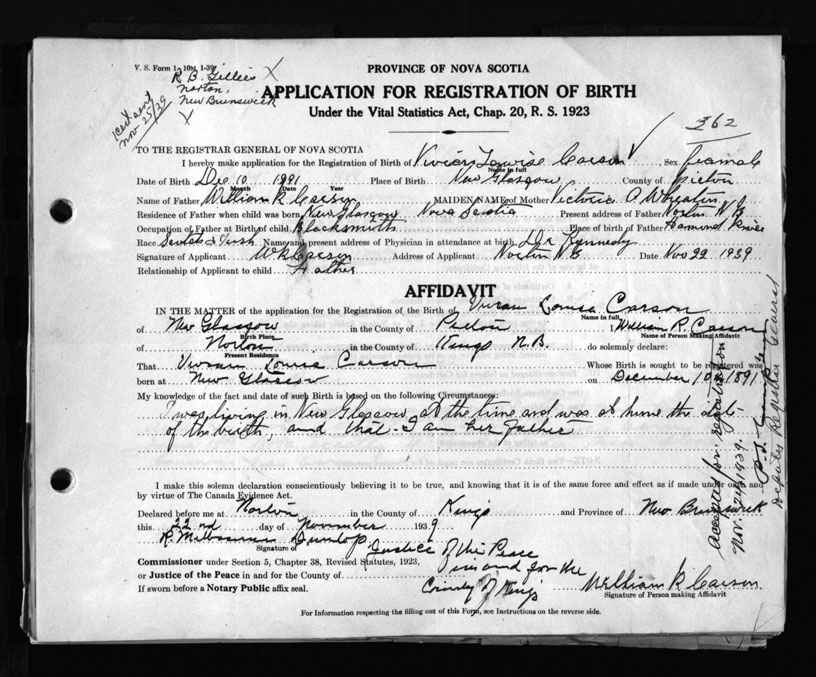 V. S. Form 1
R. B. Gillies X
Norton,
New Brunswick
X
Nov 25/39
362
PROVINCE OF NOVA SCOTIA
APPLICATION FOR REGISTRATION OF BIRTH
Under the Vital Statistics Act, Chap. 20, R. S. 1923
TO THE REGISTRAR GENERAL OF NOVA SCOTIA
I hereby make application for the Registration of Birth of Vivian Louise Carson Sex female
Name in full
Date of Birth Dec 10 1891 Place of Birth New Glasgow County of Pictou
Month Date Year
Name of Father William R Carson MAIDEN NAME of Mother Victoria A Wheaton
Residence of Father when child was born New Glasgow Nova Scotia Present address of Father Norton N B
Occupation of Father at Birth of child Blacksmith Place of birth of Father Hamond River
Race Scotch & Irish Name and present address of Physician in attendance at birth Dr Kennedy
Signature of Applicant W R Carson Address of Applicant Norton N B Date Nov 22 1939
Relationship of Applicant to child Father
AFFIDAVIT
IN THE MATTER of the application for the Registration of the Birth of Vivian Louisa Carson
Name in full
of New Glasgow in the County of Pictou I William R Carson
Birth Place Name of Person Making Affidavit
of Norton in the County of Kings N.B. do solemnly declare:
Present Residence
That Vivian Louise Carson Whose Birth is sought to be registered was
born at New Glasgow on December 10th 1891
My knowledge of the fact and date of such Birth is based on the following Circumstances:
I was living in New Glasgow at the time and was at home the date
of the birth, and that I am her father
I make this solemn declaration conscientiously believing it to be true, and knowing that it is of the same force and effect as if made under oath and
by virtue of The Canada Evidence Act.
Declared before me at Norton in the County of Kings and Province of New Brunswick
this 22nd day of November 1939
R. Melbourne Dunlop Justice of the Peace
Signature of
Commissioner under Section 5, Chapter 38, Revised Statutes, 1923, in and for the
or Justice of the Peace in and for the County of
County of Kings
If sworn before a Notary Public affix seal. William R Carson
Signature of Person making Affidavit
For Information respecting the filling out of this Form, see Instructions on the reverse side.
Accepted for registration
Nov. 24, 1939.
Deputy Registrar General